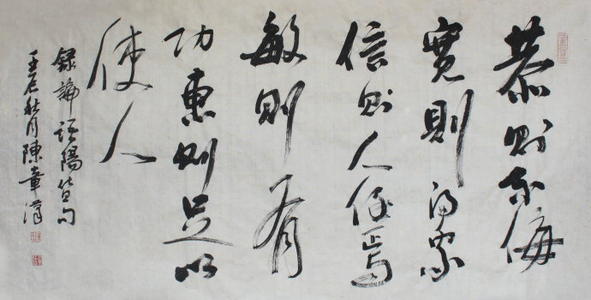 恭則不侮
寬則得眾
信則人任焉
敏則有
功惠則足以
使人
錄論語陽貨句
壬辰秋月陳章漢